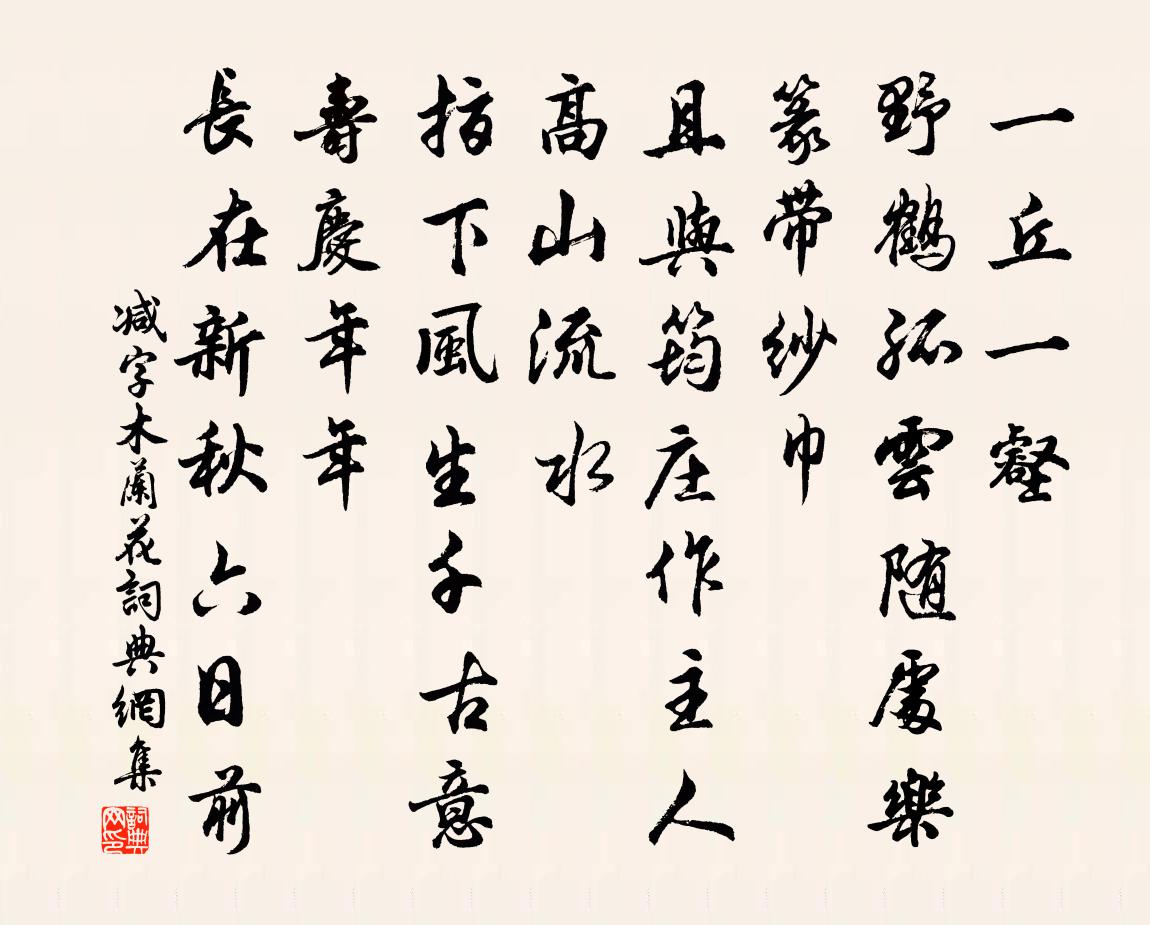 一丘一壑
野鶴孤雲隨處樂
篆帶紗巾
且與筠庄作主人
高山流水
指下風生千古意
壽慶年年
長在新秋六日前
減字木蘭花詞典網集
詞典网印